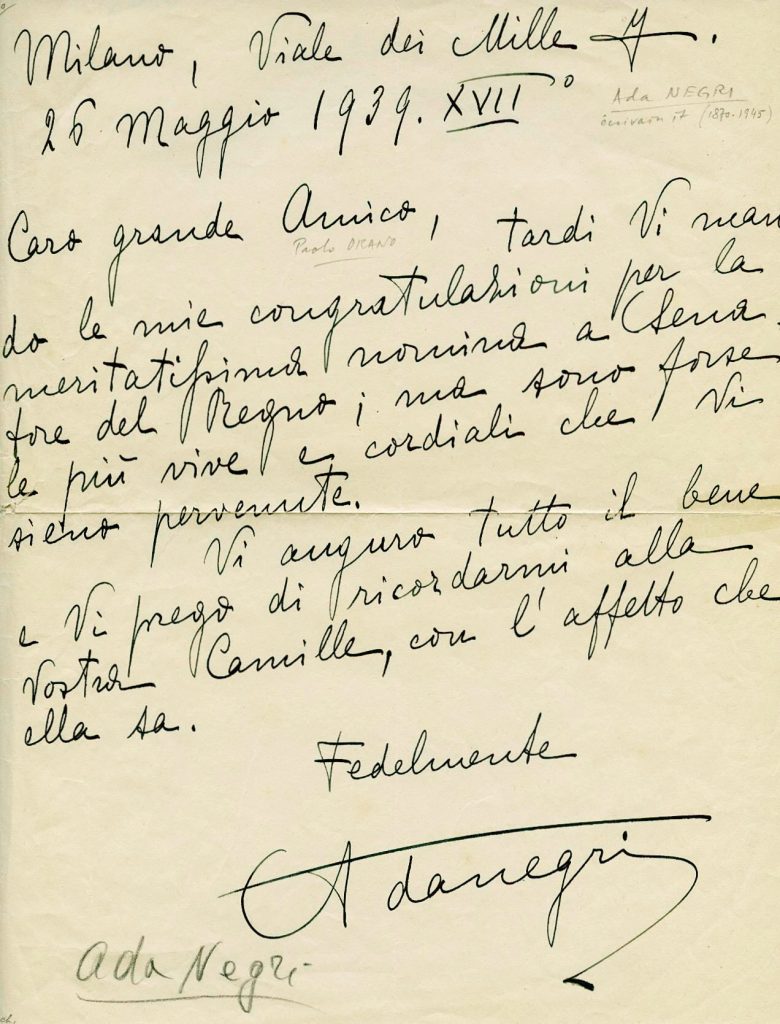 Milano, Viale dei Mille 7.
26 Maggio 1939. XVII°
Ada NEGRI
écrivain it (1870-1945)
Caro grande Amico, tardi Vi man
Paolo ORANO
do le mie congratulazioni per la
meritatissima nomina a Sena-
tore del Regno; ma sono forse
le più vive e cordiali che Vi
sieno pervenute.
Vi auguro tutto il bene
e Vi prego di ricordarmi alla
Vostra Camille, con l'affetto che
ella sa.
Fedelmente
Adanegri
Ada Negri
ch.